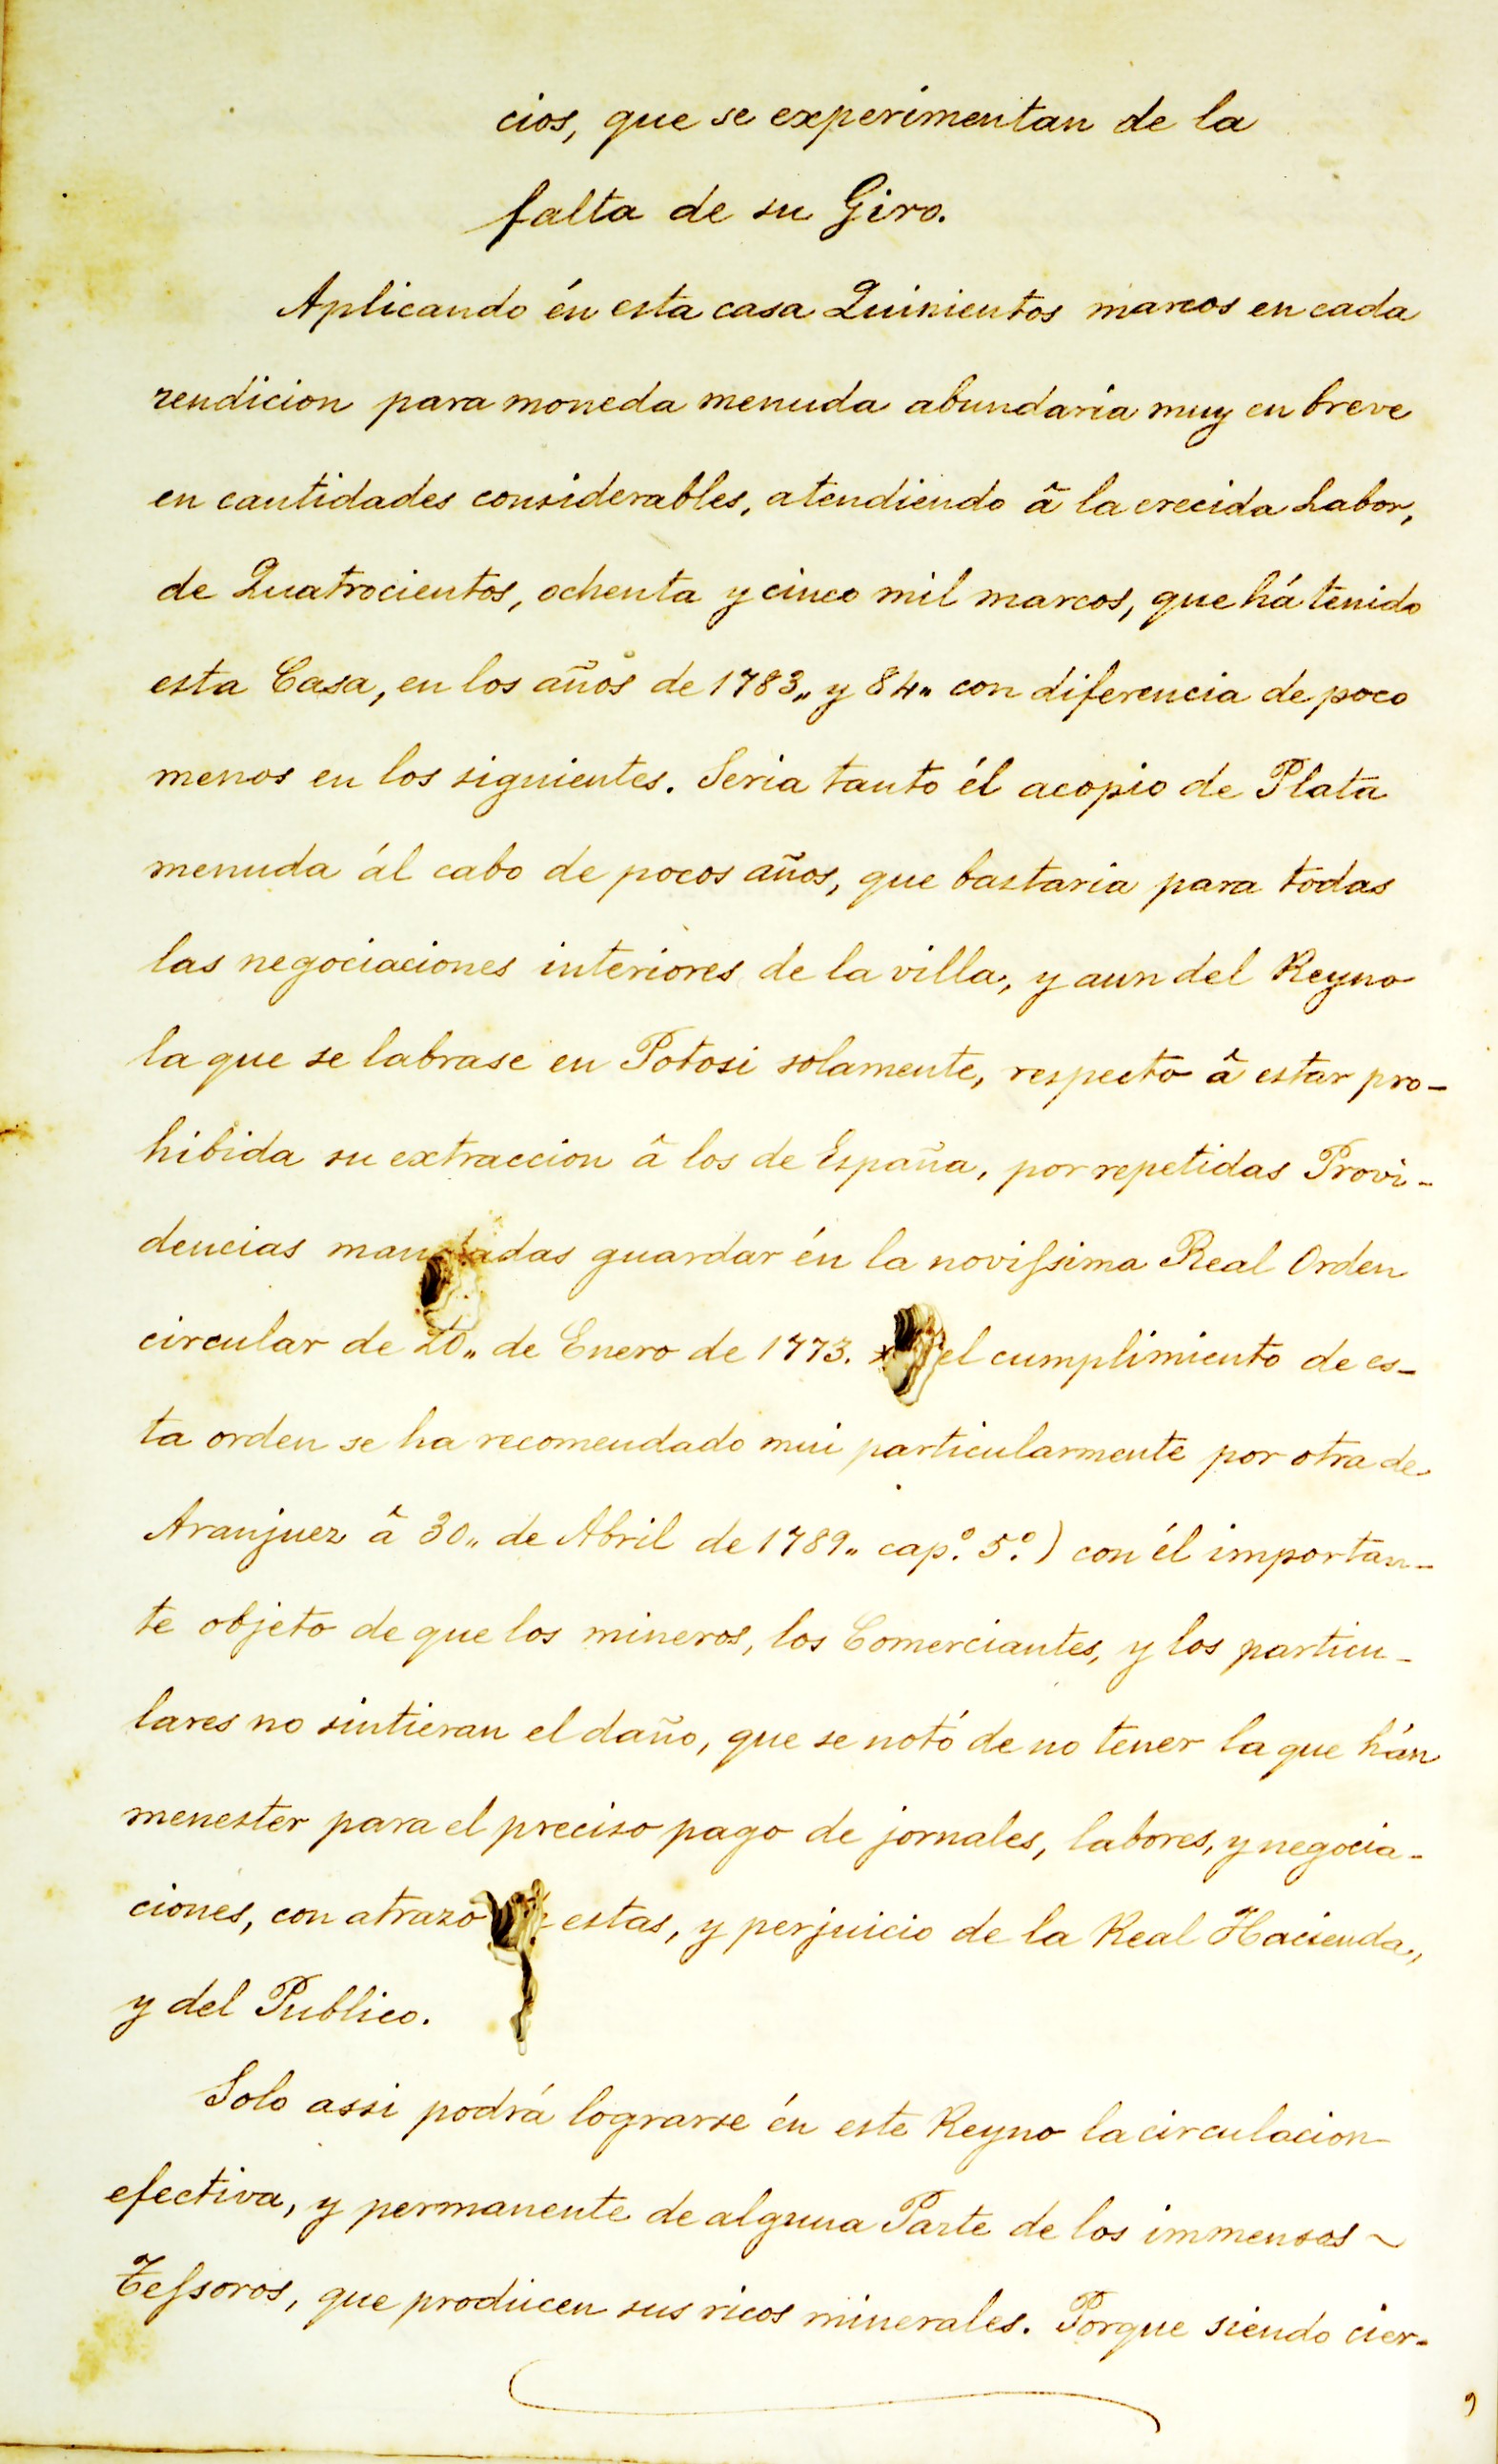 cios, que se experimentan de la
falta de su Giro.
Aplicando én esta casa Quinientos marcos en cada
rendicion para moneda menuda abundaria muy en breve
en cantidades considerables, atendiendo â la crecida Labor,
de Quatrocientos, ochenta y cinco mil marcos, que há tenido
esta Casa, en los años de 1783,, y 84,, con diferencia de poco
menos en los siguientes. Seria tanto él acopio de Plata
menuda ál cabo de pocos años, que bastaria para todas
las negociaciones interiores de la villa, y aun del Reyno
la que se labrase en Potosi solamente, respecto â estar pro-
hibida su extraccion â los de España, por repetidas Provi-
dencias mandadas guardar én la novissima Real Orden
circular de 20,, de Enero de 1773. * el cumplimiento de es-
ta orden se ha recomendado mui particularmente por otra de
Aranjuez â 30,, de Abril de 1789,, cap.º 5.º) con él importan-
te objeto de que los mineros, los Comerciantes, y los particu-
lares no sintieran el daño, que se notó de no tener la que hán
menester para el preciso pago de jornales, labores, y negocia-
ciones, con atrazo estas, y perjuicio de la Real Hacienda,
y del Publico.
Solo assi podrá lograrse én este Reyno la circulacion
efectiva, y permanente de alguna Parte de los immensos ~
Tessoros, que producen sus ricos minerales. Porque siendo cier-